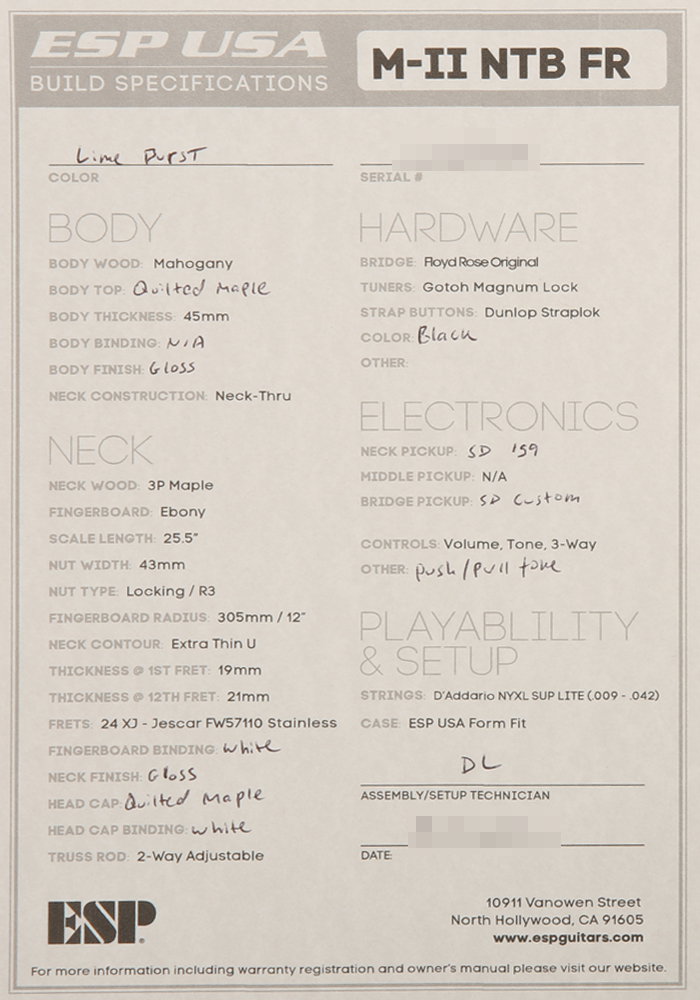 ESP USA
BUILD SPECIFICATIONS
M-II NTB FR
Lime Burst
COLOR
SERIAL #
BODY
BODY WOOD: Mahogany
BODY TOP: Quilted Maple
BODY THICKNESS: 45mm
BODY BINDING: N/A
BODY FINISH: Gloss
NECK CONSTRUCTION: Neck-Thru
NECK
NECK WOOD: 3P Maple
FINGERBOARD: Ebony
SCALE LENGTH: 25.5"
NUT WIDTH: 43mm
NUT TYPE: Locking / R3
FINGERBOARD RADIUS: 305mm / 12"
NECK CONTOUR: Extra Thin U
THICKNESS @ 1ST FRET: 19mm
THICKNESS @ 12TH FRET: 21mm
FRETS: 24 XJ - Jescar FW57110 Stainless
FINGERBOARD BINDING: white
NECK FINISH: Gloss
HEAD CAP: Quilted Maple
HEAD CAP BINDING: white
TRUSS ROD: 2-Way Adjustable
HARDWARE
BRIDGE: Floyd Rose Original
TUNERS: Gotoh Magnum Lock
STRAP BUTTONS: Dunlop Straplok
COLOR: Black
OTHER:
ELECTRONICS
NECK PICKUP: SD '59
MIDDLE PICKUP: N/A
BRIDGE PICKUP: SD Custom
CONTROLS: Volume, Tone, 3-Way
OTHER: push/pull tone
PLAYABLILITY
& SETUP
STRINGS: D'Addario NYXL SUP LITE (.009 - .042)
CASE: ESP USA Form Fit
DL
ASSEMBLY/SETUP TECHNICIAN
DATE:
ESP
10911 Vanowen Street
North Hollywood, CA 91605
www.espguitars.com
For more information including warranty registration and owner's manual please visit our website.